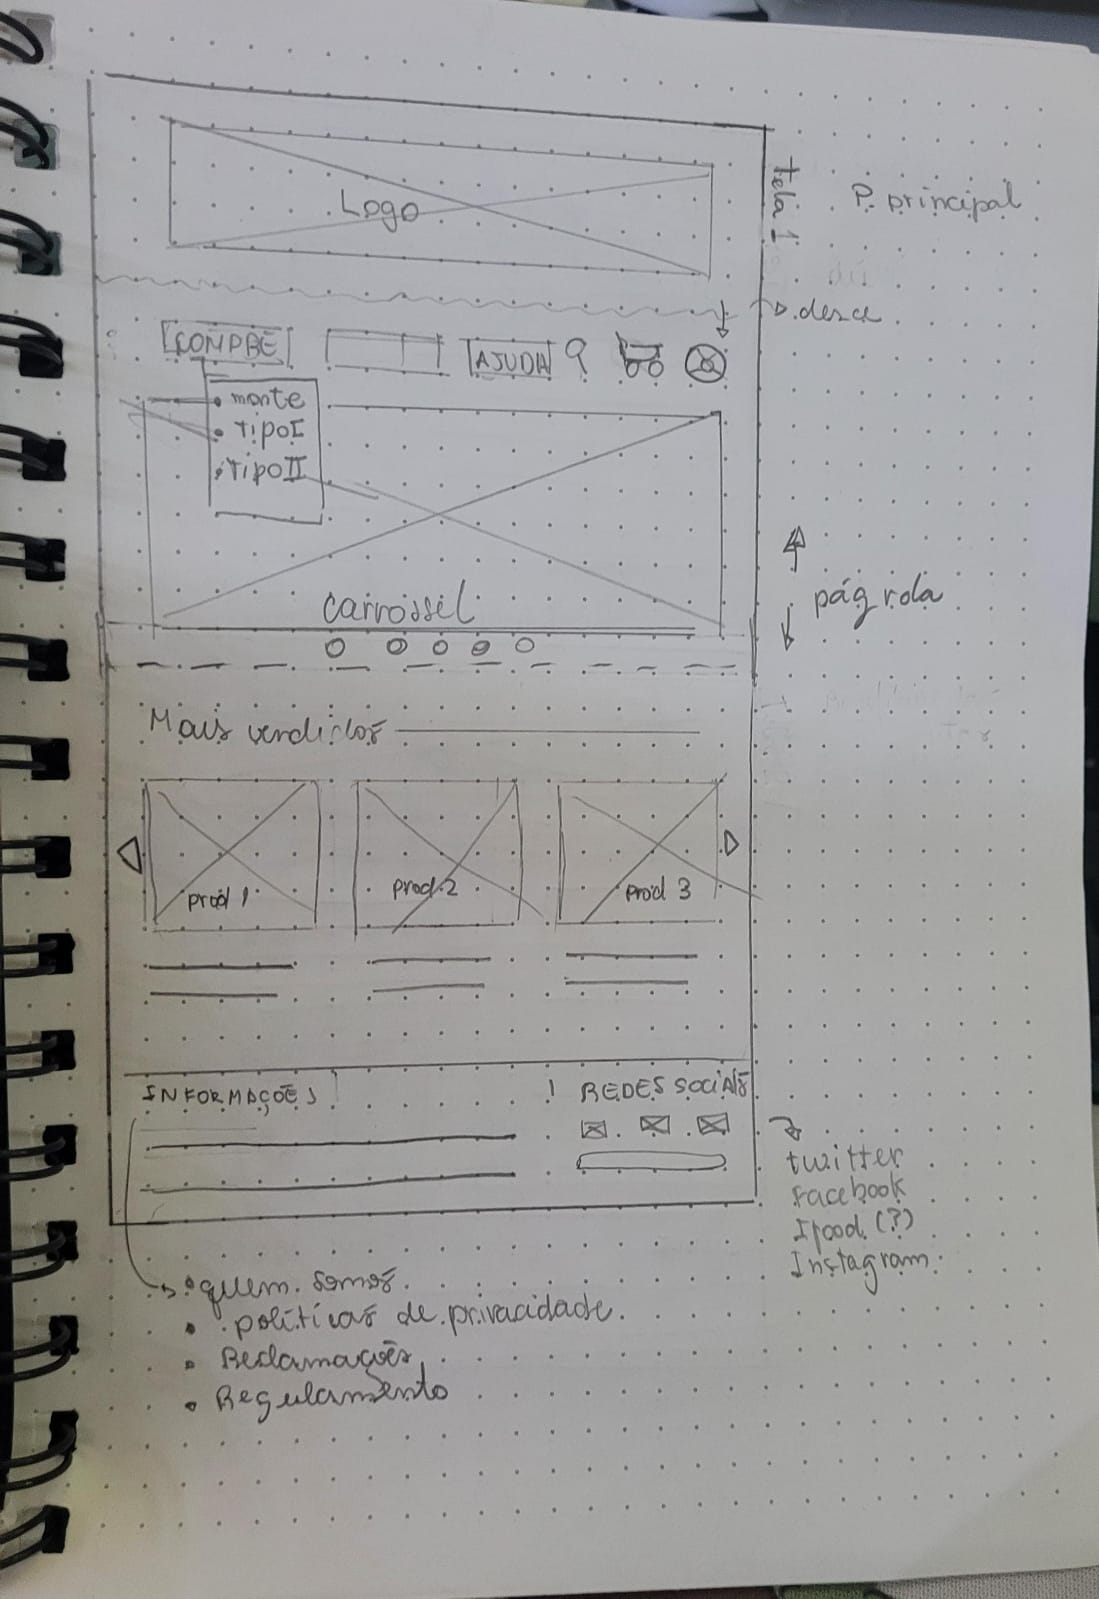 Logo
tela 1
P. principal
desce
COMPRE
AJUDA ?
• monte
• TIPO I
• TIPO II
pág rola
carrossel
Mais vendidos
prod 1
prod. 2
prod 3
INFORMAÇÕES
REDES SOCIAIS
twitter
Facebook
Ifood (?)
Instagram
• quem somos
• políticas de privacidade.
• Reclamações
• Regulamento